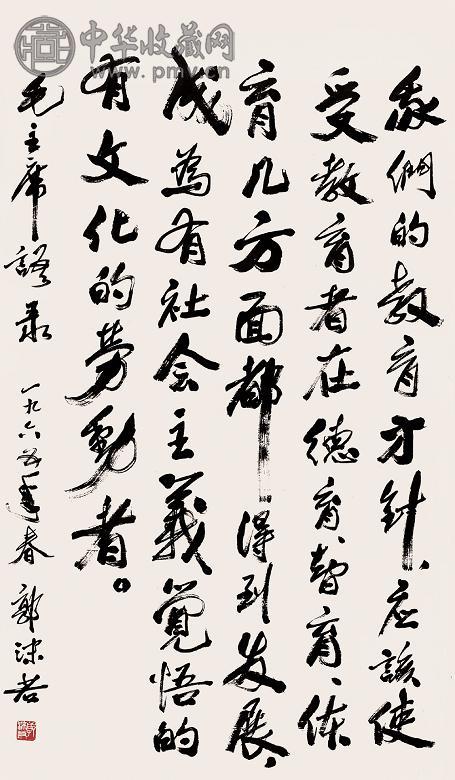 我們的教育方針、应該使
受教育者在德育、智育、体
育几方面都得到发展、
成為有社会主義覺悟的
有文化的勞動者。
毛主席語录 一九六五年春 郭沫若
中华收藏网
www.pmv.cn